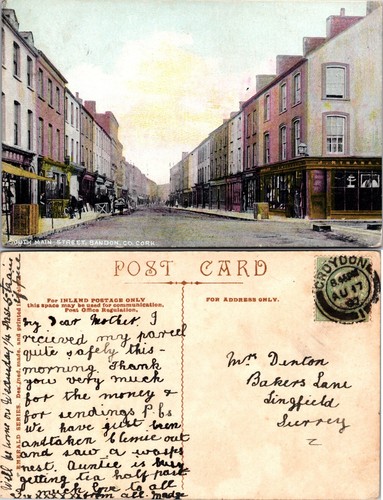 SOUTH MAIN STREET, BANDON, CO. CORK
POST CARD
For INLAND POSTAGE ONLY
this space may be used for communication,
Post Office Regulation,
FOR ADDRESS ONLY.
CROYDON
AU 17
07
My Dear Mother. I
recieved my parcel
quite safety this-
morning. Thank
you very much
for the money &
for sendings P bs
We have just been
and taken
out
and saw a wasps
nest. Auntie is busy
getting tea half past
much love to all
from all. Madge
Will be home on Wednesday
EMERALD SERIES. Designed, made, and printed
Mrs Denton
Bakers Lane
Lingfield
Surrey